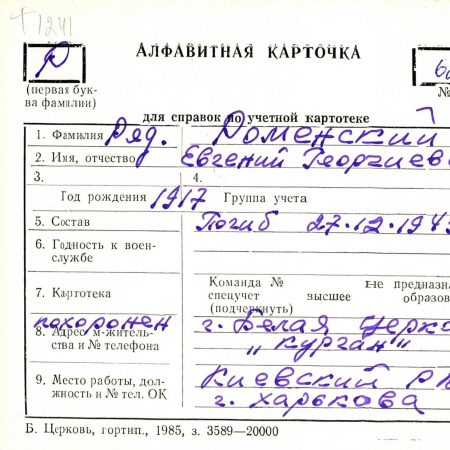 1241
Р
АЛФАВИТНАЯ КАРТОЧКА
(первая бук-
ва фамилии)
№
для справок по учетной картотеке
1. Фамилия Ряд. Роменский
2. Имя, отчество Евгений Георгиев
3. 4.
Год рождения 1917 Группа учета
5. Состав Погиб 27.12.194
6. Годность к воен-
службе
Команда № не предназна
7. Картотека спецучет высшее образов
(подчеркнуть)
похоронен г. Белая Церко
8. Адрес м-житель-
ства и № телефона „Курган“
9. Место работы, дол-
жность и № тел. ОК
Киевский Р
г. Харькова
Б. Церковь, гортип., 1985, з. 3589—20000